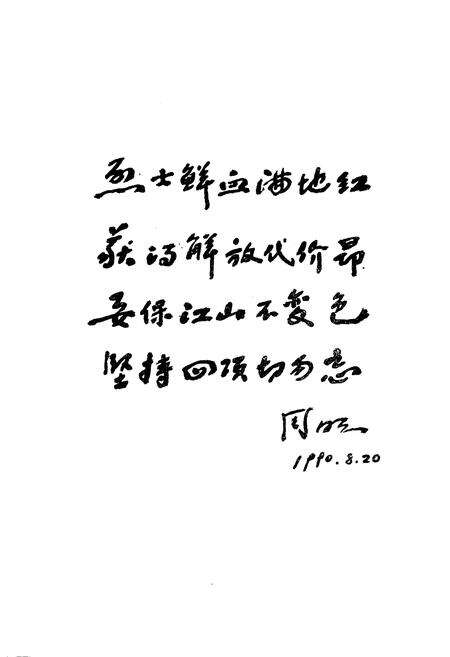 烈士鲜血满地红
获得解放代价昂
要保江山不变色
坚持四项切勿忘
周
1990.8.20